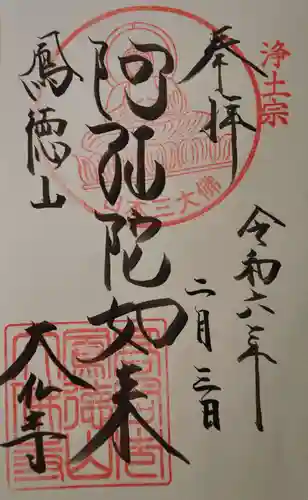 奉拝
浄土宗
令和六年
二月三日
阿弥陀如来
日本三大佛
鳳徳山
大仏寺